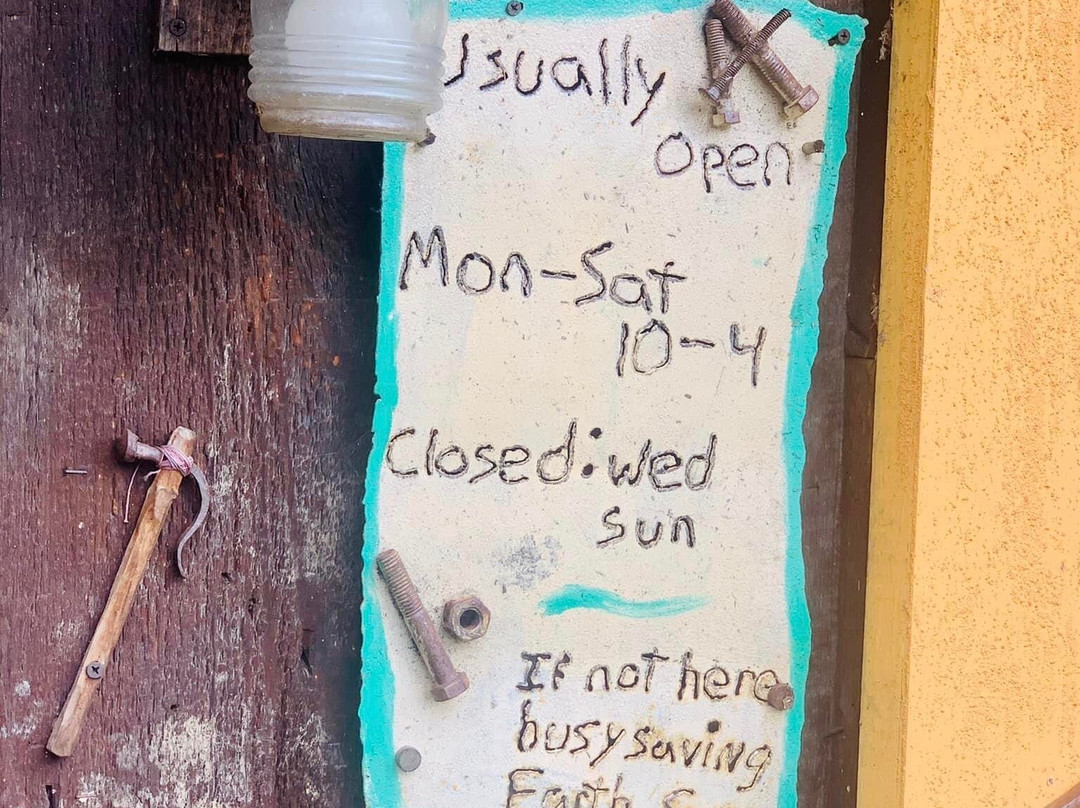 Usually
Open
Mon-Sat
10-4
Closed: wed
sun
If not here
busy saving
Earth